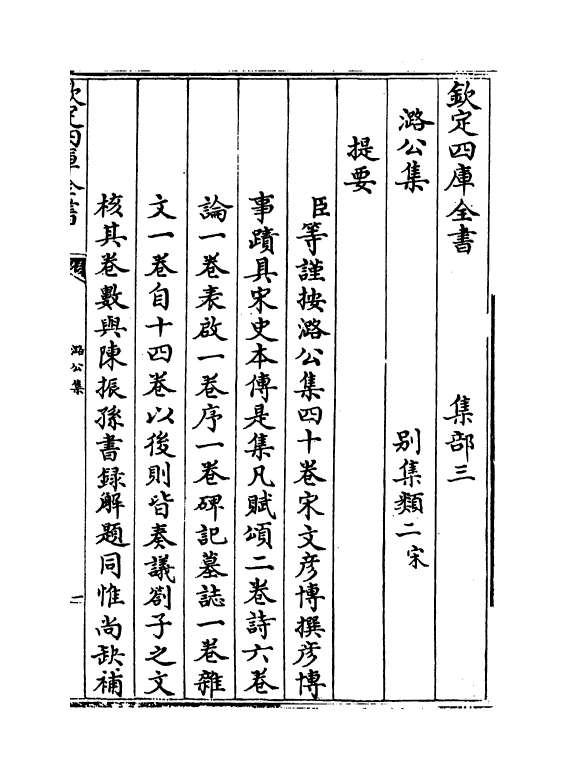 欽定四庫全書　集部三
潞公集　别集類二宋
提要
臣等謹按潞公集四十卷宋文彦博撰彦博
事蹟具宋史本傳是集凡賦頌二卷詩六卷
論一卷表啟一卷序一卷碑記墓誌一卷雜
文一卷自十四卷以後則皆奏議劄子之文
核其卷數與陳振孫書録解題同惟尚缺補
欽定四庫全書
潞公集
一